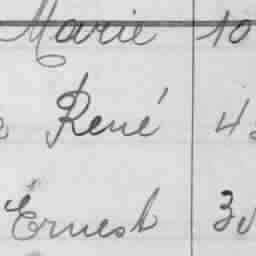 Marie 10
René 4
Ernest 30